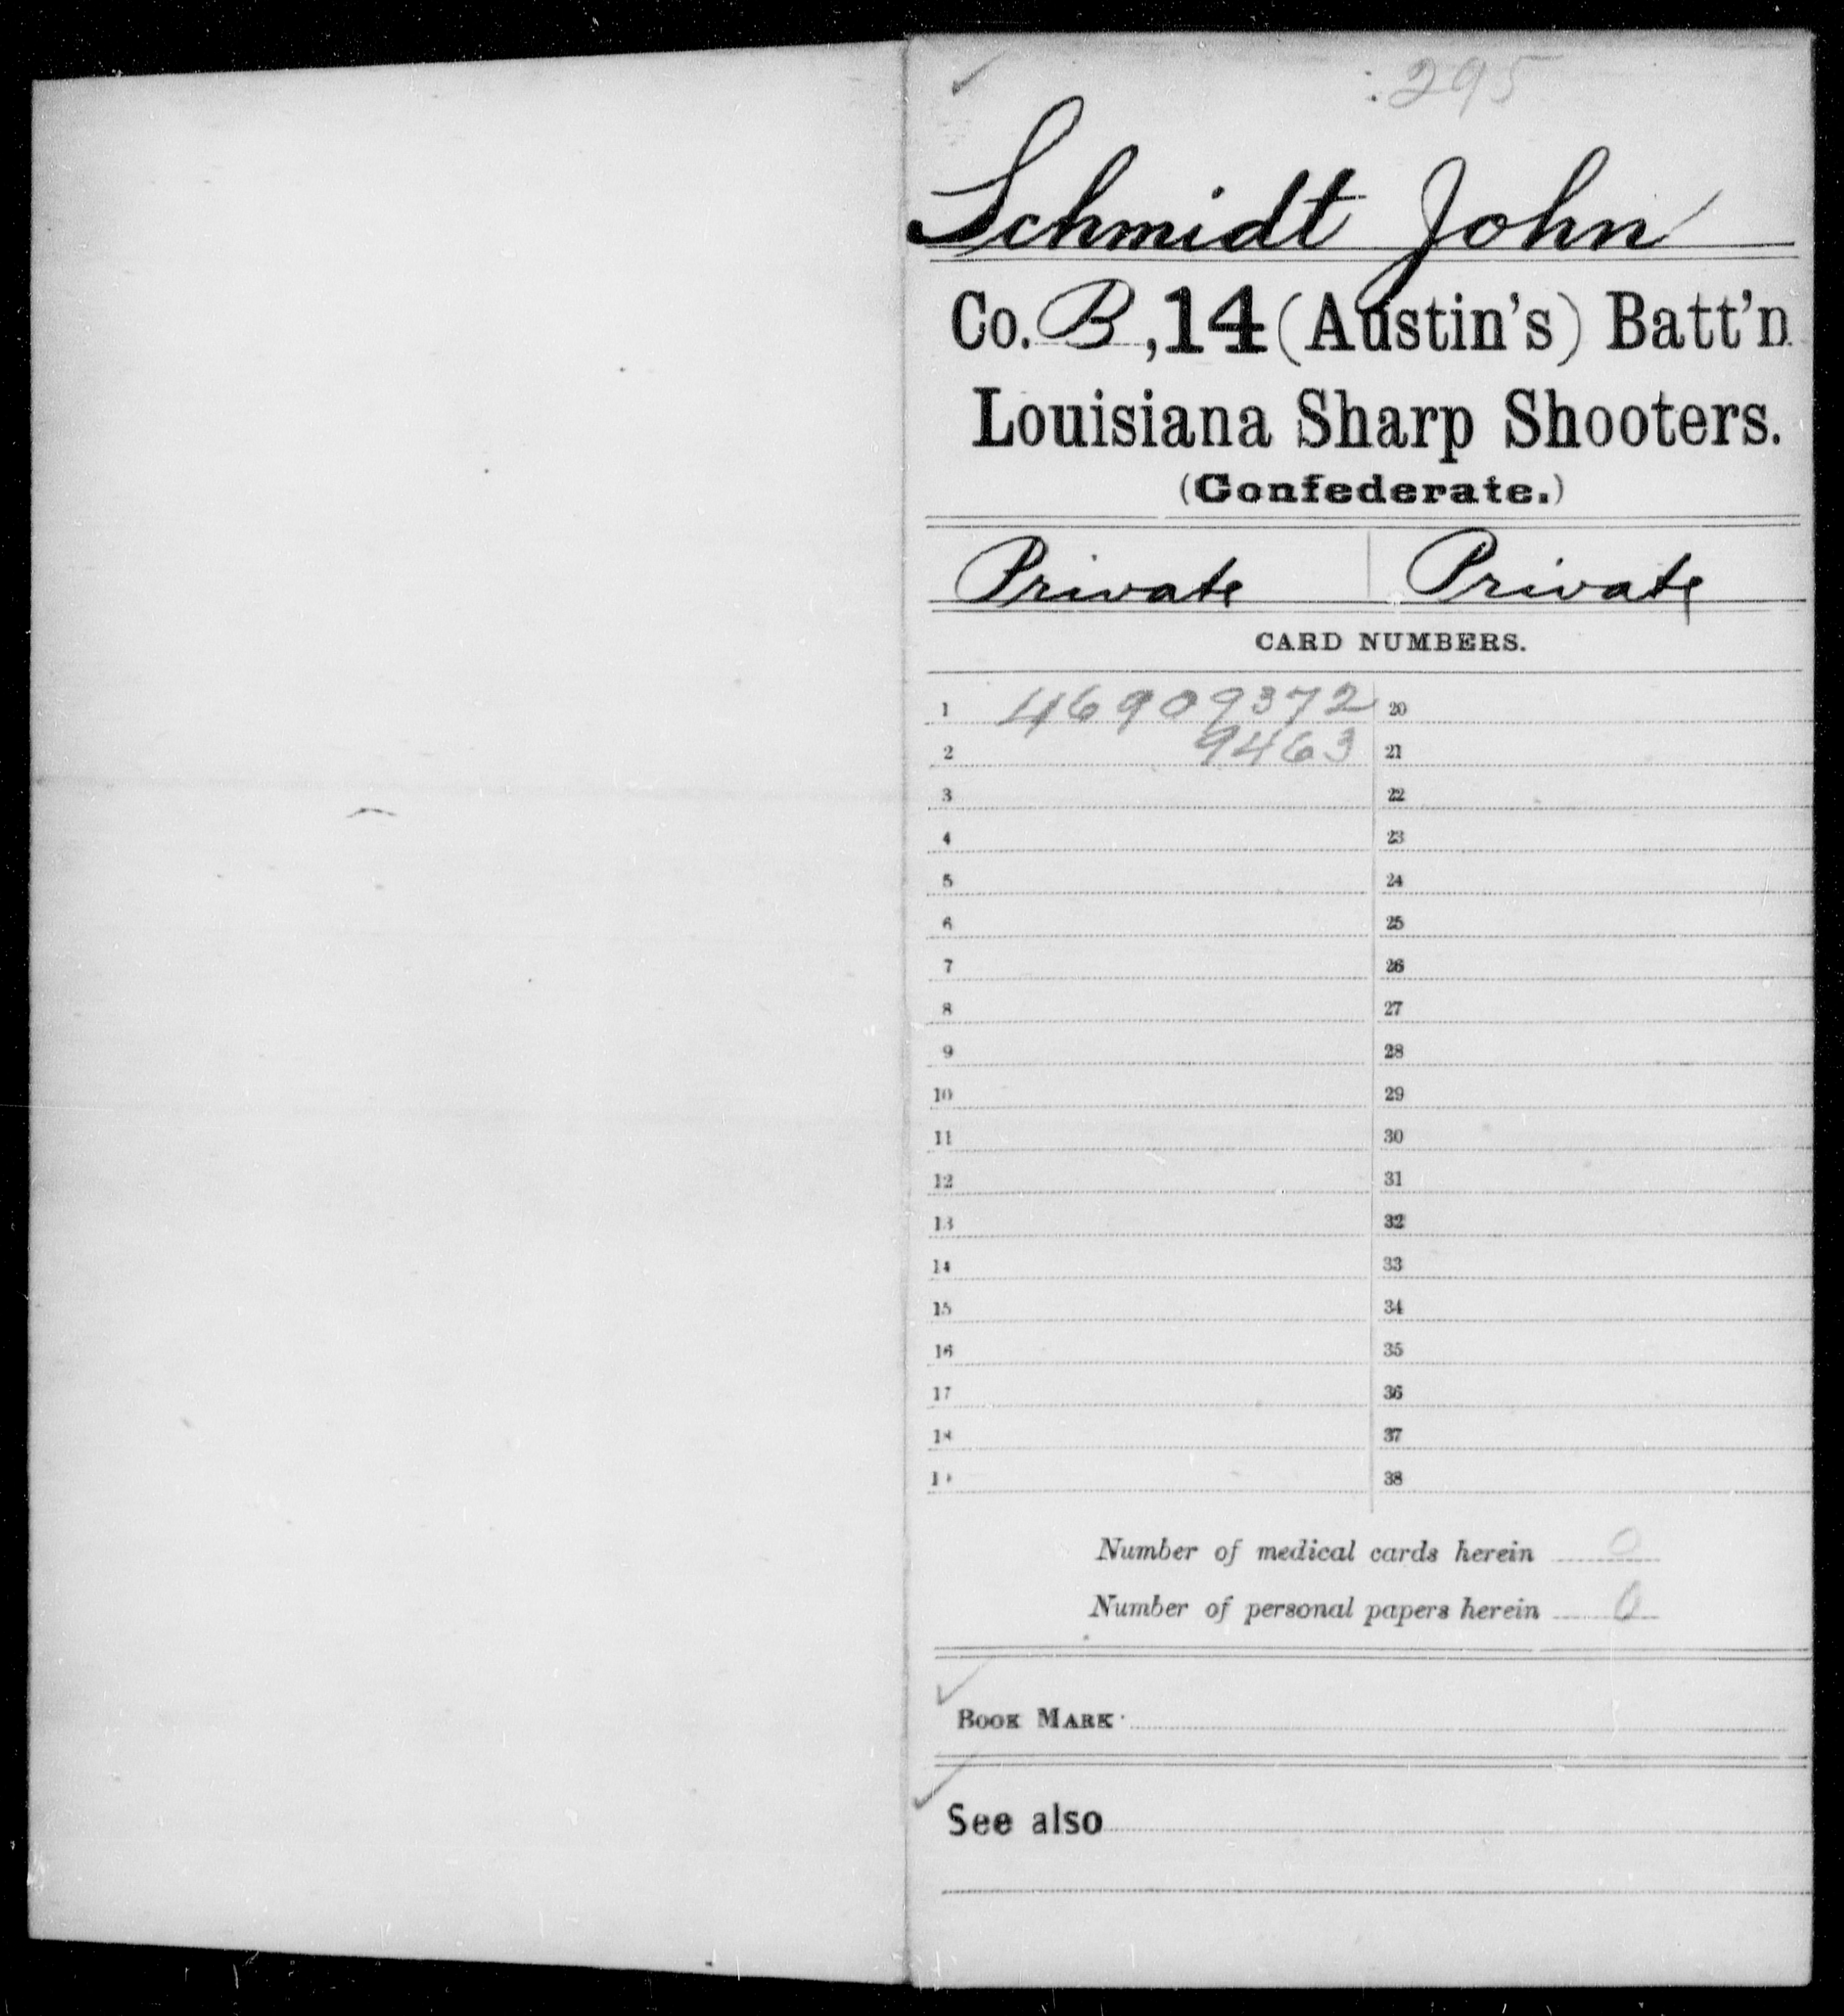 295
Schmidt John
Co. B, 14 (Austin's) Batt'n
Louisiana Sharp Shooters.
(Confederate.)
Private Private
CARD NUMBERS.
1 46909372 20
2 9463 21
3 22
4 23
5 24
6 25
7 26
8 27
9 28
10 29
11 30
12 31
13 32
14 33
15 34
16 35
17 36
18 37
19 38
Number of medical cards herein 0
Number of personal papers herein 0
BOOK MARK
See also